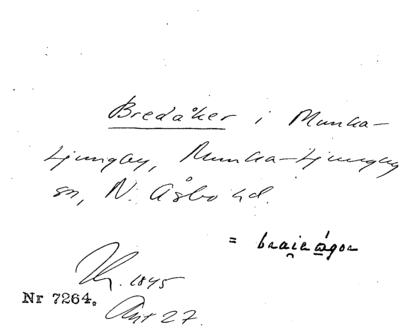 Bredåker i Munka-
Ljungby, Munka-Ljungby
sn, N. Åsbo hd.
= braieågor
1845
Nr 7264.
Ant 27.